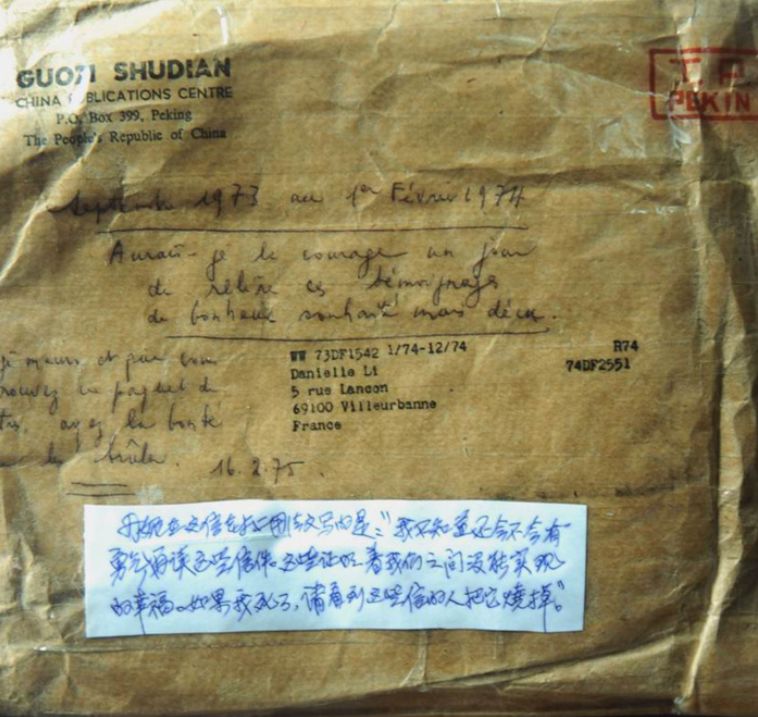 GUOZI SHUDIAN
CHINA PUBLICATIONS CENTRE
P.O. Box 399, Peking
The People's Republic of China
T. P.
PEKIN
Septembre 1973 au 1er Février 1974
Aurais-je le courage un jour
de relire ces témoignages
de bonheur souhaité mais déçu.
je meurs et que vous
trouvez ce paquet de
ayez la bonté
de les brûler. 16.2.75.
WW 73DF1542 1/74-12/74
R74
74DF2551
Danielle Li
5 rue Lancon
69100 Villeurbanne
France
在信封上用法文写的是:“我不知道还会不会有
勇气再读这些信件。这些证明着我们之间没能实现
的幸福。如果我死了,请看到这些信的人把它烧掉。”